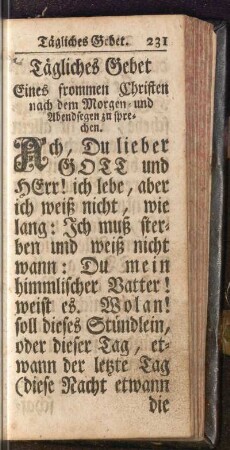 Tägliches Gebet. 231
Tägliches Gebet
Eines frommen Christen
nach dem Morgen- und
Abendsegen zu spre-
chen.
Ach, Du lieber
GOTT und
HErr! ich lebe, aber
ich weiß nicht, wie
lang: Ich muß ster-
ben und weiß nicht
wann: Du mein
himmlischer Vatter!
weist es. Wolan!
soll dieses Stündlein,
oder dieser Tag, et-
wann der letzte Tag
(diese Nacht etwann
die